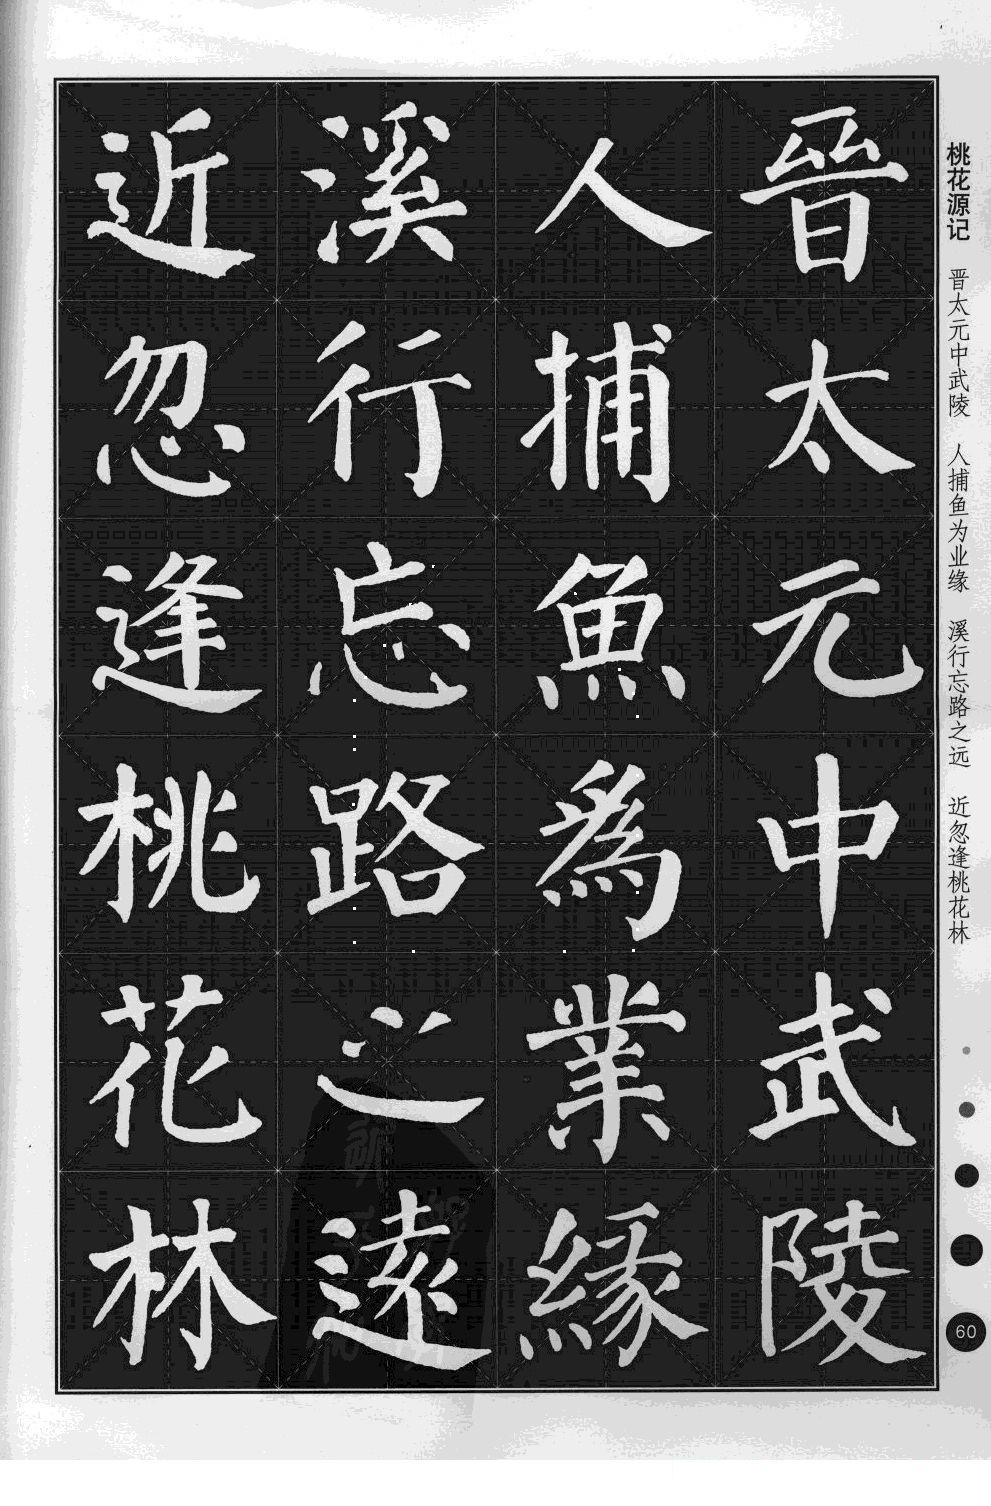 桃花源记 晋太元中武陵 人捕鱼为业缘 溪行忘路之远 近忽逢桃花林
晋太元中武陵
人捕魚為業緣
溪行忘路之遠
近忽逢桃花林
60